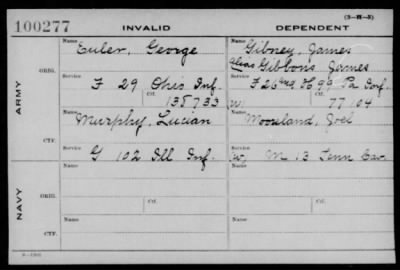 (3—H—5)
100277 INVALID DEPENDENT
ARMY
ORIG.
Name Euler, George
Service F 29 Ohio Inf.
Ctf. 135733
Name Gibney, James
alias Gibbons James
Service F 26 & H 99 Pa Inf.
W. Ctf. 77104
CTF.
Name Murphy, Lucian
Service G 102 Ill Inf.
Name Mooreland, Joel
Service W, M 13 Tenn Cav.
NAVY
ORIG.
Name
Service Ctf.
Name
Service Ctf.
CTF.
Name
Name